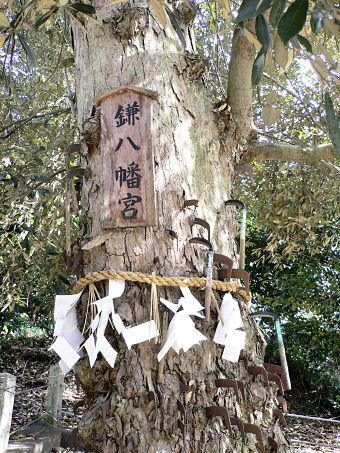 鎌八幡宮